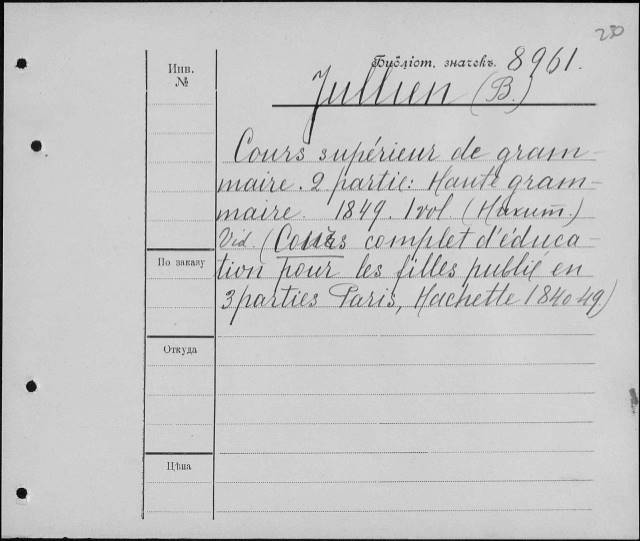 230
Библіот. значекъ. 8961.
Инв.
№
Jullien (B.)
Cours supérieur de gram-
maire. 2 partie: Haute gram-
maire. 1849. 1 vol.
Vid. (Cours complet d'éduca-
tion pour les filles publié en
3 parties Paris, Hachette 1840-49)
По заказу
Откуда
Цѣна